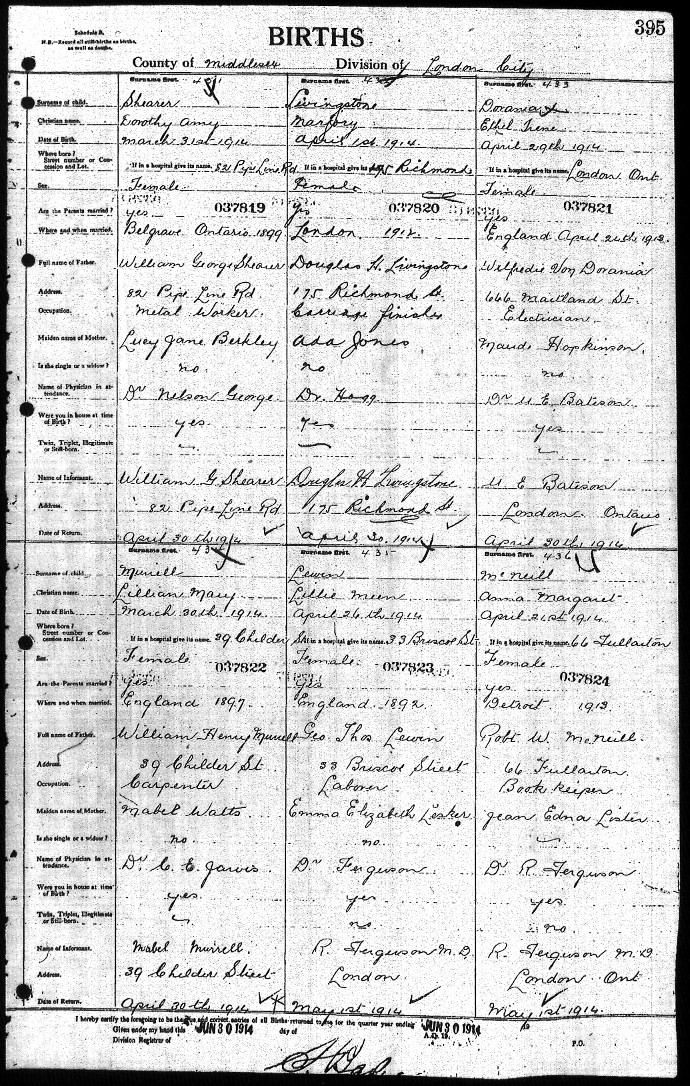 Schedule B.
N.B.—Record all still-births as births, as well as deaths.
BIRTHS
395
County of Middlesex Division of London City
Surname first. 431 Surname first. Surname first. 433
Surname of child. Shearer Livingstone Dorania
Christian name. Dorothy Amy Marjory Ethel Irene
Date of Birth. March 31st 1914 April 1st 1914 April 29th 1914
Where born? Street number or Concession and Lot. If in a hospital give its name. 82 Pipe Line Rd If in a hospital give its name. 175 Richmond If in a hospital give its name. London Ont
Sex. Female Female Female
037819 037820 037821
Are the Parents married? yes yes yes
Where and when married. Belgrave Ontario 1899 London 1912 England April 24th 1913.
Full name of Father. William George Shearer Douglas H. Livingstone Wilfredie Von Dorania
Address. 82 Pipe Line Rd 175 Richmond St. 666 Maitland St.
Occupation. Metal Worker. Carriage finisher Electrician.
Maiden name of Mother. Lucy Jane Berkley Ada Jones Maude Hopkinson.
Is she single or a widow? no. no no.
Name of Physician in attendance. Dr Nelson George Dr. Hogg Dr U E Bateson
Were you in house at time of Birth? yes. Yes yes
Twin, Triplet, Illegitimate or Still-born.
Name of Informant. William G Shearer Douglas H Livingstone U E Bateson
Address. 82 Pipe Line Rd 175 Richmond St London Ontario
Date of Return. April 30th 1914 April 30. 1914 April 30th 1914
Surname first. 434 Surname first. 435 Surname first. 436
Surname of child. Murrell Lewin McNeill
Christian name. Lillian Mary Lillie Meen Anna Margaret
Date of Birth. March 30th 1914 April 26th 1914 April 21st 1914
Where born? Street number or Concession and Lot. If in a hospital give its name. 39 Childer St If in a hospital give its name. 33 Briscoe St. If in a hospital give its name. 66 Fullarton
Sex. Female Female Female
037822 037823 037824
Are the Parents married? yes yes yes
Where and when married. England 1897. England 1892. Detroit 1913
Full name of Father. William Henry Murrell Geo. Thos. Lewin Robt W. McNeill.
Address. 39 Childer St 33 Briscoe Street 66 Fullarton.
Occupation. Carpenter Laborer Book Keeper
Maiden name of Mother. Mabel Watts Emma Elizabeth Jean Edna Lister
Is she single or a widow? no no.
Name of Physician in attendance. Dr C. E. Jarvis Dr Ferguson Dr R Ferguson
Were you in house at time of Birth? yes yes yes.
Twin, Triplet, Illegitimate or Still-born. no no.
Name of Informant. Mabel Murrell. R. Ferguson M.D. R. Ferguson M.D.
Address. 39 Childer Street London. London Ont
Date of Return. April 30th 1914 May 1st 1914 May 1st 1914.
I hereby certify the foregoing to be the true and correct entries of all Births returned to me for the quarter year ending JUN 30 1914
Given under my hand this JUN 30 1914 day of A.D. 19
Division Registrar of P.O.